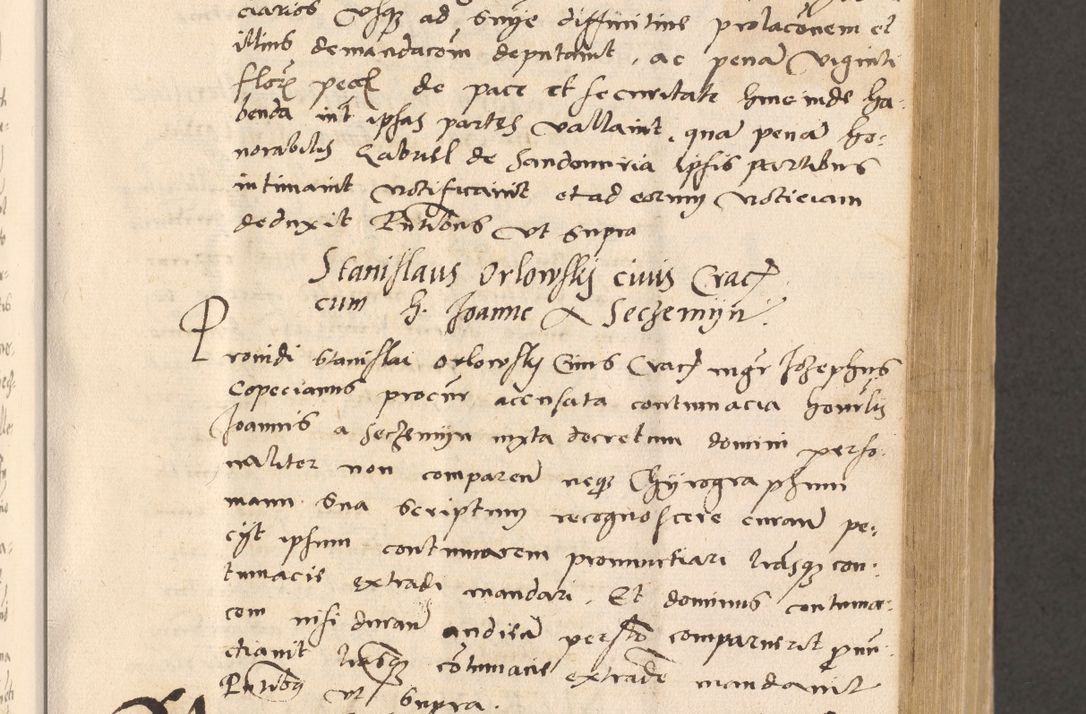 ciarios Usq ad Snÿe diffinitive prolacõnem et
illius demandacõm deputavit, ac pena viginti
florz pecz de pace et securitate hincinde ha-
benda int ipsas partes vallavit, qua pena ho-
norabilis Gabriel de Sandomiria ipsis partibus
intimavit notificavit et ad eorum noticiam
deduxit Pntibus Ut supra
Stanislaus Orlowskij civis Crac
cum h. Joanne A Seczemijn.
Providi Stanislai Orlowskij Civis Crac mgr Jozephus
Copecianus procur acensata contumacia honrlis
Joannis a Seczemijn iuxta decretum domini perso-
naliter non comparen neqz Chyrographum
manu sua Scriptum recognoscere curan pe-
cijt ipsum contumacem pronunciari lrasqz con-
tumacie extradi mandari. Et dominus contuma-
cem nisi duran audien persto comparuerit pnu-
ctiavit lrasqz cõtumacie extrade mandavit
Pntibq ut Supra.